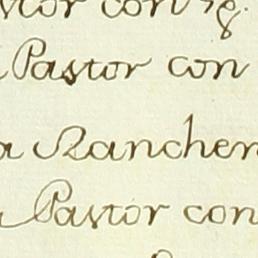 Pastor con
Pastor con
a Ranchen
Pastor con